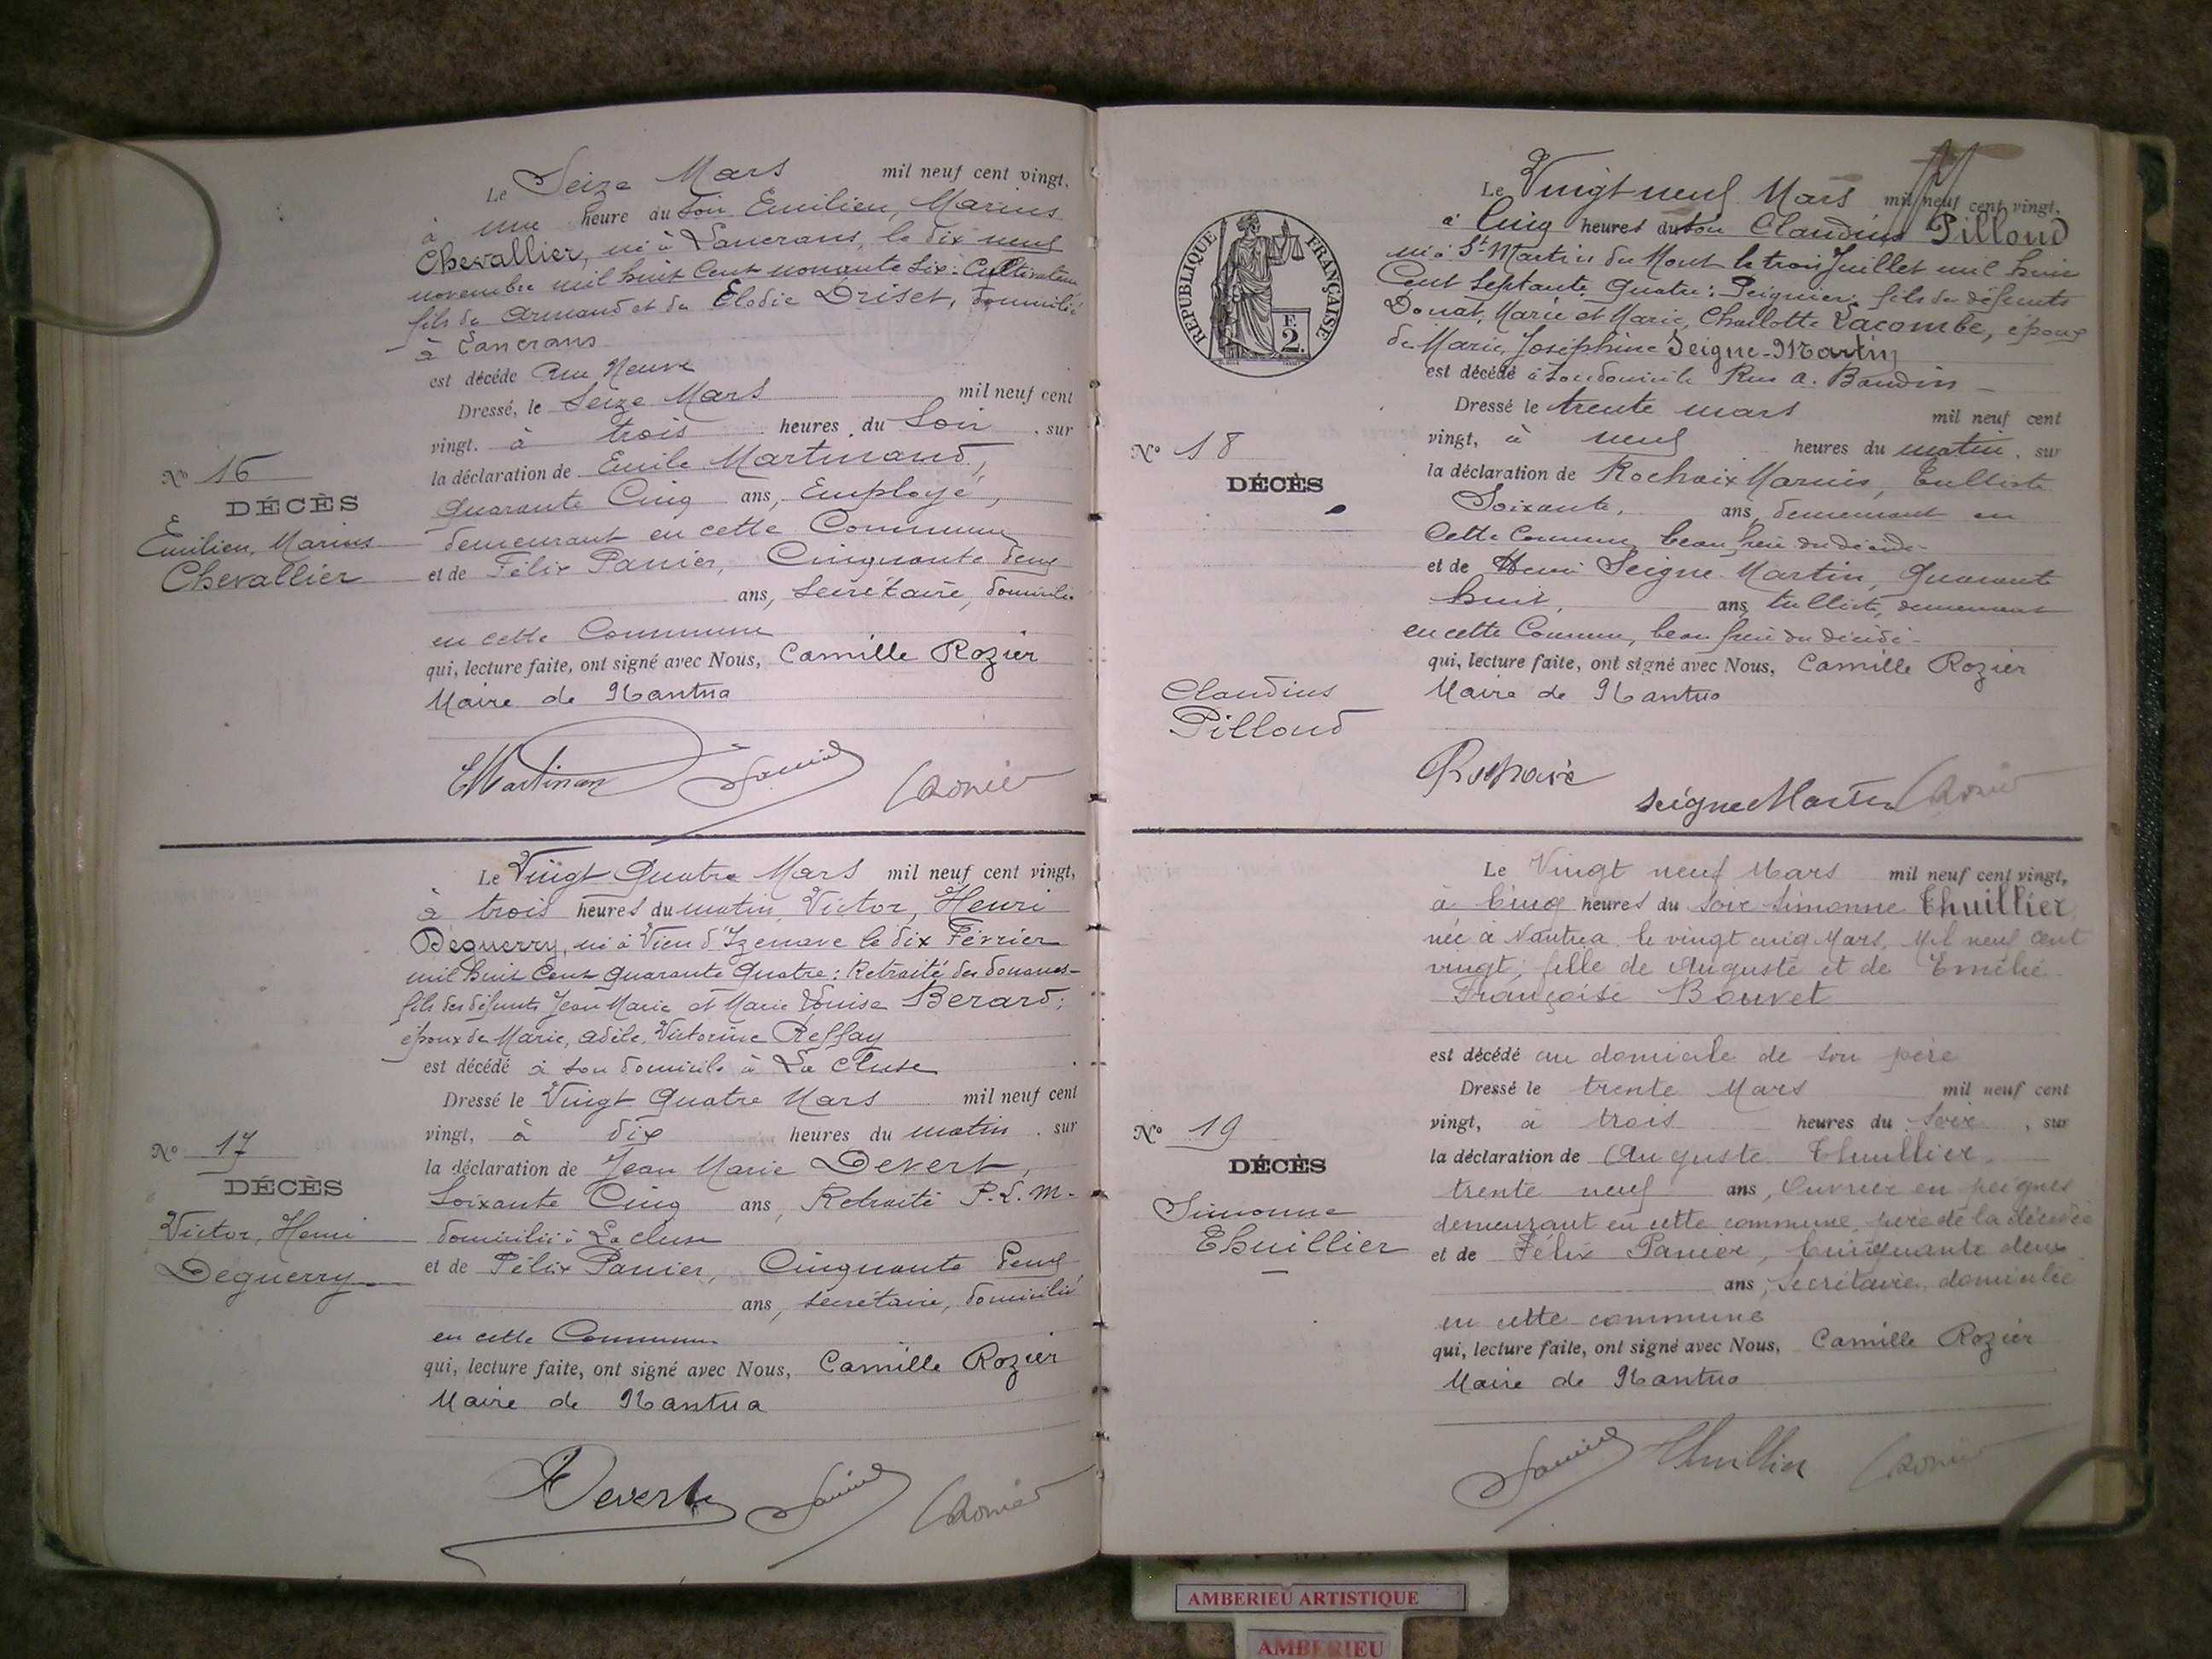 Le Seize Mars mil neuf cent vingt,
à une heure du Soir Emilien, Marius
Chevallier, né à Lancrans, le dix neuf
novembre mil huit Cent nonante Six : Cultivateur
fils de Armand et de Elodie Driset, domicilié
à Lancrans
est décédé Rue Neuve
Dressé, le Seize Mars mil neuf cent
vingt. à trois heures du Soir, sur
la déclaration de Emile Martinand,
Quarante Cinq ans, Employé,
demeurant en cette Commune
et de Félix Panier, Cinquante deux
ans, Secrétaire, domicilié
en cette Commune
qui, lecture faite, ont signé avec Nous, Camille Rozier
Maire de Nantua
No 16
DÉCÈS
Emilien, Marius
Chevallier
Le Vingt Quatre Mars mil neuf cent vingt,
à trois heures du matin, Victor, Henri
Deguerry, né à Vieu d'Izenave le dix Février
mil huit Cent quarante Quatre : Retraité des douanes-
fils des défunts Jean Marie et Marie Louise Berard ;
époux de Marie, Adèle, Victorine Reffay
est décédé à son domicile à La Cluse
Dressé le Vingt Quatre Mars mil neuf cent
vingt, à dix heures du matin, sur
la déclaration de Jean Marie Devert,
Soixante Cinq ans, Retraité P.L.M-
domicilié à La Cluse
et de Félix Panier, Cinquante deux
ans, secrétaire, domicilié
en cette Commune
qui, lecture faite, ont signé avec Nous, Camille Rozier
Maire de Nantua
Devert
No 17
DÉCÈS
Victor, Henri
Deguerry
RÉPUBLIQUE FRANÇAISE
F.
2.
Le Vingt neuf Mars mil neuf cent vingt,
à Cinq heures du soir Claudius Pilloud
né à St Martin du Mont le trois Juillet mil huit
Cent Septante Quatre : Peignier, fils des défunts
Donat, Marie et Marie, Charlotte Lacombe, époux
de Marie, Joséphine Seigne-Martin
est décédé à son domicile Rue A. Baudin -
Dressé le trente mars mil neuf cent
vingt, à neuf heures du matin, sur
la déclaration de Rochaix Marius, tulliste
Soixante, ans, demeurant en
Cette Commune, beau frère du décédé-
et de Henri Seigne-Martin, Quarante
huit, ans, tulliste, demeurant
en cette Commune, beau frère du décédé-
qui, lecture faite, ont signé avec Nous, Camille Rozier
Maire de Nantua
seigne Martin
No 18
DÉCÈS
Claudius
Pilloud
Le Vingt neuf Mars mil neuf cent vingt,
à Cinq heures du soir Simonne Thuillier
née à Nantua le vingt cinq Mars, Mil neuf cent
vingt ; fille de Auguste et de Emélie
Françoise Bouvet
est décédé au domicile de son père
Dressé le trente Mars mil neuf cent
vingt, à trois heures du Soir, sur
la déclaration de Auguste Thuillier,
trente neuf ans, Ouvrier en peignes
demeurant en cette commune, père de la décédée
et de Félix Panier, Cinquante deux
ans, Secrétaire, domicilié
en cette commune
qui, lecture faite, ont signé avec Nous, Camille Rozier
Maire de Nantua
Thuillier
No 19
DÉCÈS
Simonne
Thuillier
AMBERIEU ARTISTIQUE
AMBERIEU